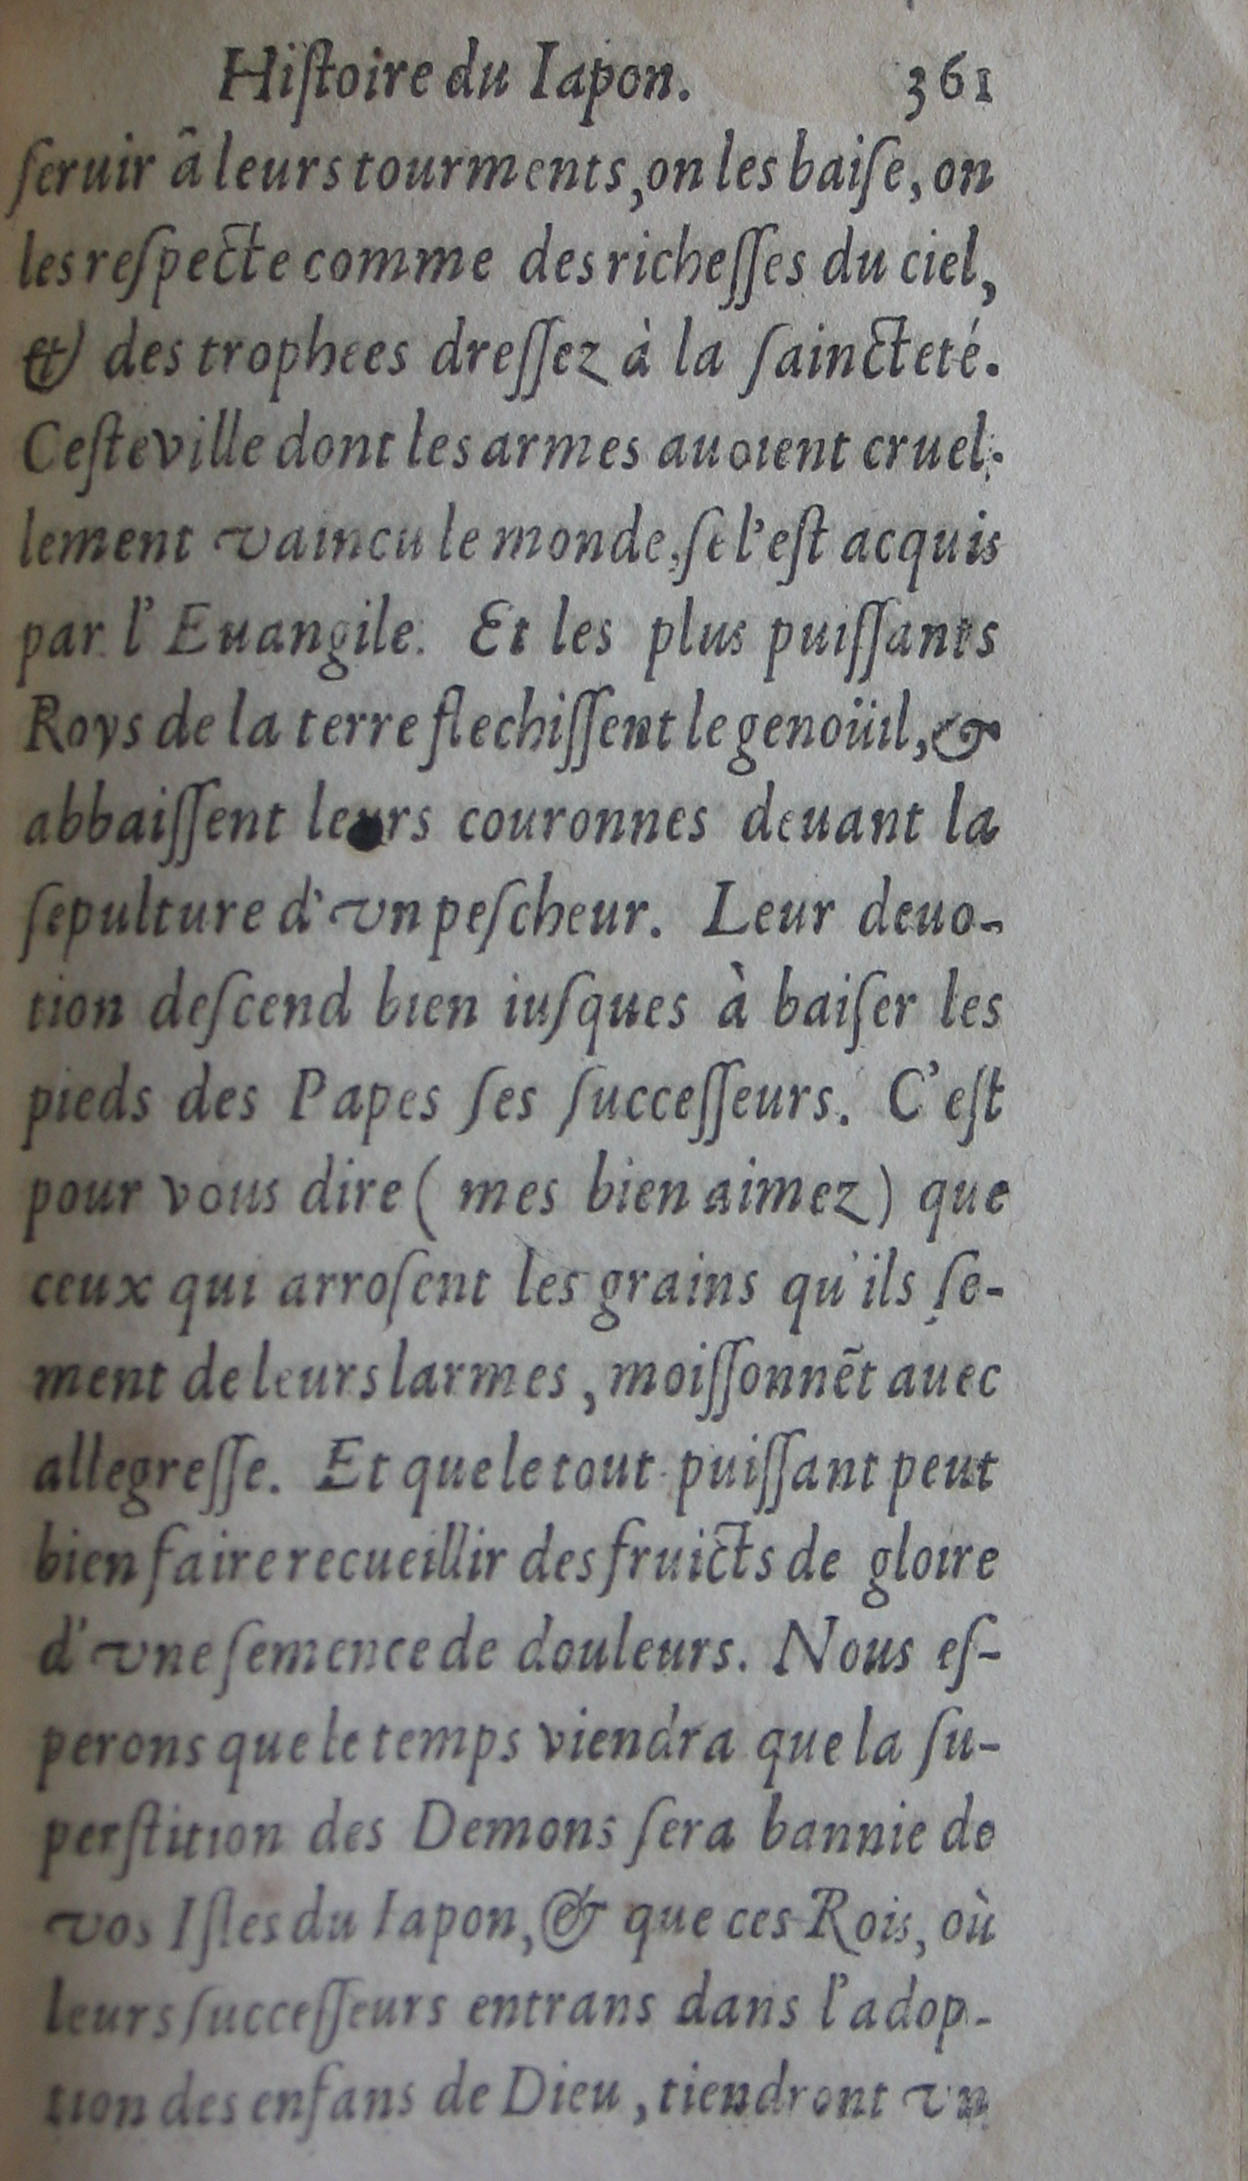 Hiſtoire du Iapon. 361
ſeruir â leurs tourments, on les baiſe, on
les reſpecte comme des richeſſes du ciel,
& des trophees dreſſez à la ſaincteté.
Ceſte ville dont les armes auoient cruel-
lement vaincu le monde, ſe l'eſt acquis
par l'Euangile. Et les plus puiſſants
Roys de la terre flechiſſent le genoüil, &
abbaiſſent leurs couronnes deuant la
ſepulture d'vn peſcheur. Leur deuo-
tion deſcend bien iuſques à baiſer les
pieds des Papes ſes ſucceſſeurs. C'eſt
pour vous dire ( mes bien aimez) que
ceux qui arroſent les grains qu'ils ſe-
ment de leurs larmes, moiſſonnẽt auec
allegreſſe. Et que le tout puiſſant peut
bien faire recueillir des fruicts de gloire
d'vne ſemence de douleurs. Nous eſ-
perons que le temps viendra que la ſu-
perſtition des Demons ſera bannie de
vos Iſles du Iapon, & que ces Rois, où
leurs ſucceſſeurs entrans dans l'adop-
tion des enfans de Dieu, tiendront vn